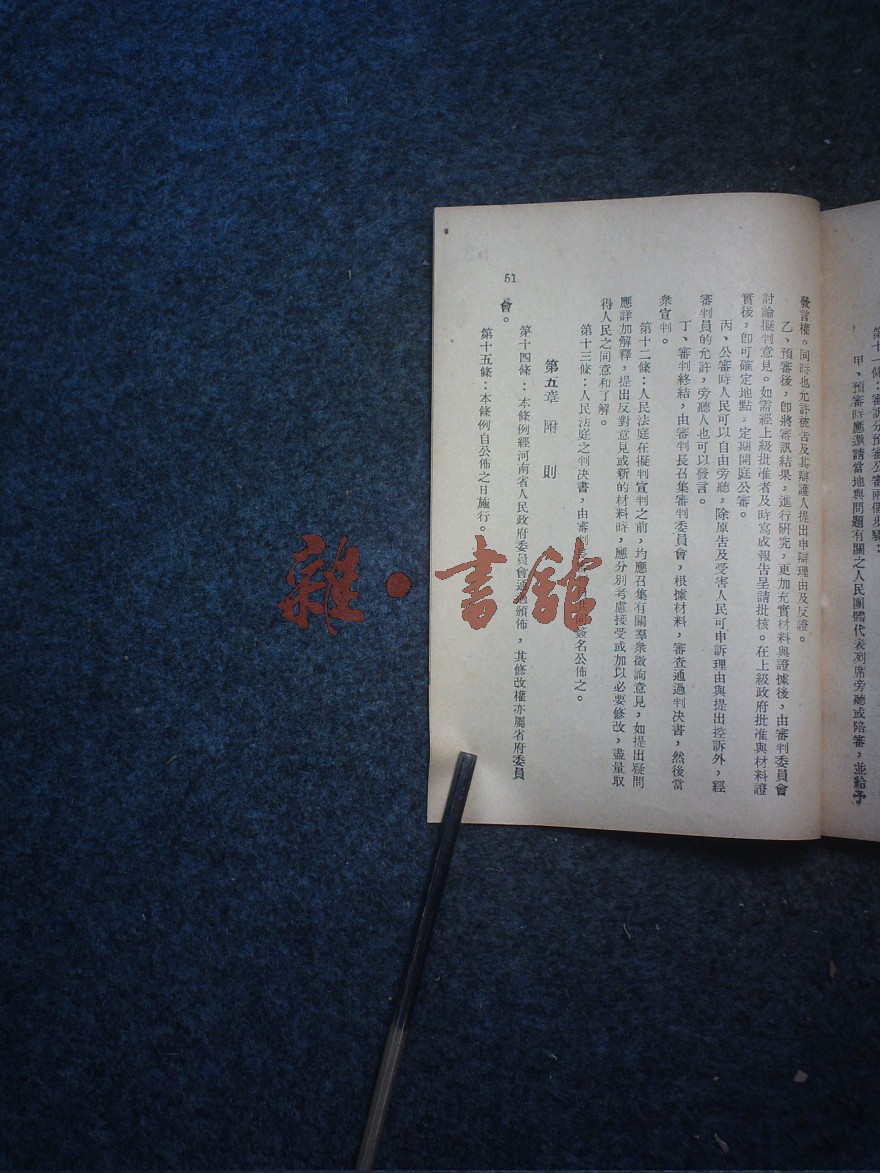 第十一條：審訊分預審公審兩個步驟：
甲、預審時應邀請當地與問題有關之人民團體代表列席旁聽或陪審，並給予
發言權。同時也允許被告及其辯護人提出申辯理由及反證。
乙、預審後，卽將審訊結果，進行研究，更加充實材料與證據後，由審判委員會
討論擬判意見。如需經上級批准者及時寫成報告呈請批核。在上級政府批准與材料證
實後，卽可確定地點，定期開庭公審。
丙、公審時人民可以自由旁聽，除原告及受害人民可申訴理由與提出控訴外，經
審判員的允許，旁聽人也可以發言。
丁、審判終結，由審判長召集審判委員會，根據材料，審查通過判决書，然後當
衆宣判。
第十二條：人民法庭在擬判宣判之前，均應召集有關羣衆徵詢意見，如提出疑問
應詳加解釋，提出反對意見或新的材料時，應分別考慮接受或加以必要修改，盡量取
得人民之同意和了解。
第十三條：人民法庭之判决書，由審判長簽名公佈之。
第五章 附 則
第十四條：本條例經河南省人民政府委員會通過頒佈，其修改權亦屬省府委員
會。
第十五條：本條例自公佈之日施行。
51
雜·書館